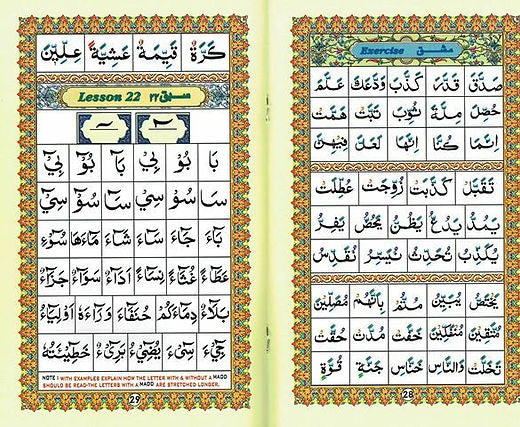 Exercise مشق
صَدَّقَ قَدَّرَ كَذَّبَ وَدَّعَكَ عَلَّمَ
حُصِّلَ مِلَّةَ ثُوِّبَ تَبَّتْ هَمَّتْ
اِنَّمَا كُنَّا اِنَّهَا لَعَلَّ فِيْهِنَّ
تَقَبَّلَ كَذَّبَتْ زُوِّجَتْ عُطِّلَتْ
يَمُدُّ يَدُعُّ يَظُنُّ يَحُضُّ يَفِرُّ
يُكَذِّبُ تُحَدِّثُ نُيَسِّرُ نُقَدِّسُ
يُبَيِّنُ مُصَلِّيْنَ
حُقَّتْ مُدَّتْ خَفَّتْ
تَخَلَّتْ وَالنَّاسِ خَنَّاسِ جَنَّةٍ قُوَّةٍ
28
كَرَّةٌ قَيِّمَةٌ عَشِيَّةً عِلِّيِّيْنَ
Lesson 22 سبق ٢٢
بَا بُوْ بِيْ بَآ بُوْٓ بِيْٓ
سَا سُوْ سِيْ سَآ سُوْٓ سِيْٓ
بَآءَ جَآءَ سَآءَ شَآءَ مَآءَهَا سُوْٓءٍ
عَطَآءً غُثَآءً نِسَآءً اَدَآءً سَوَآءٌ جَزَآءً
بَلَآءٌ دِمَآءَكُمْ حُنَفَآءَ وَرَآءَهٗ اَوْلِيَآءُ
جِيْٓءَ سِيْٓءَ يُضِيْٓءُ بَرِيْٓءٌ خَطِيْٓئَتُهٗ
NOTE : WITH EXAMPLES EXPLAIN HOW THE LETTER WITH & WITHOUT A MADD
SHOULD BE READ-THE LETTERS WITH A MADD ARE STRETCHED LONGER.
29